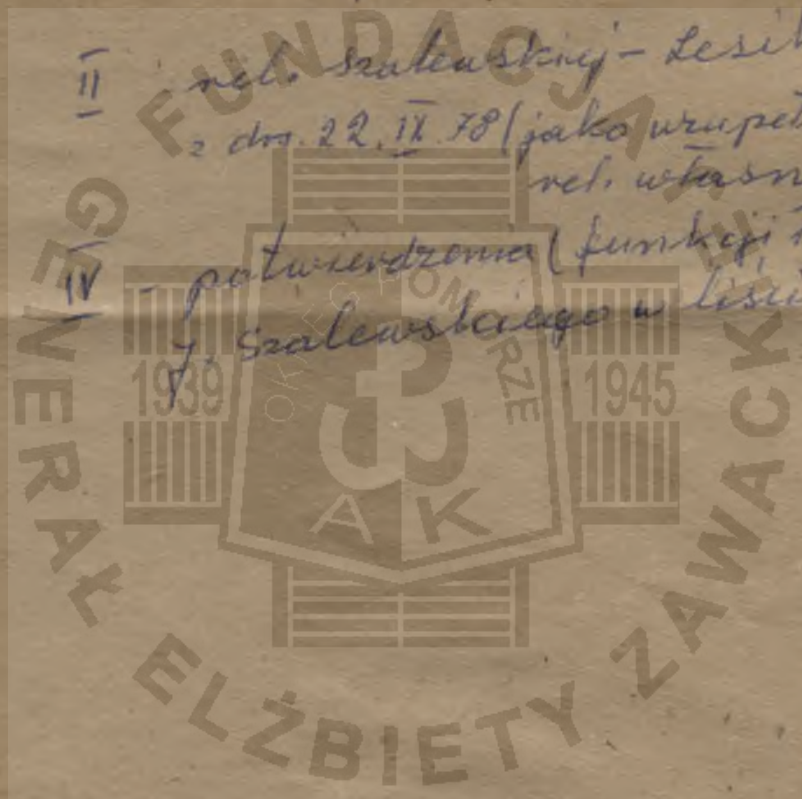 II rel. Szalewskiej - Lesi
z dn. 22.IX.78 (jako uzupeł
rel. własn
IV - potwierdzenia (funkcji
J. Szalewskiego w liści
FUNDACJA
GENERAŁ ELŻBIETY ZAWACK
OKRĘG POMORZE
1939 1945
AK